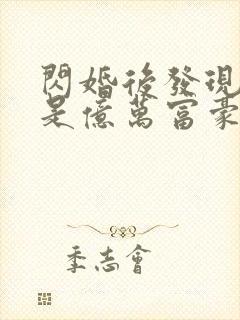 閃婚後發現
是億萬富豪
季志會